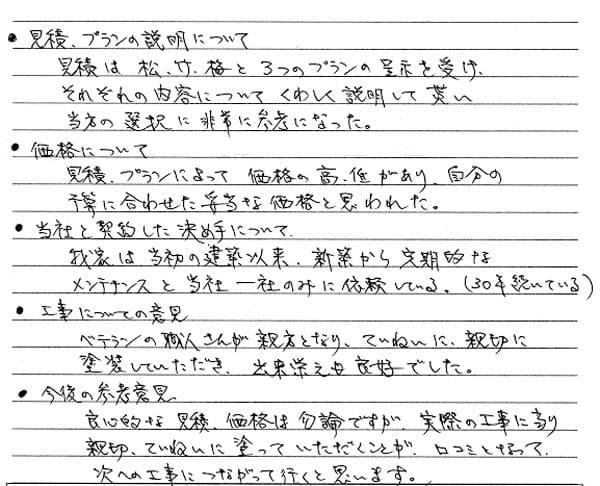 ● 見積、プランの説明について
見積は 松、竹、梅と 3つのプランの 呈示を受け、
それぞれの内容について くわしく 説明して 貰い
当方の 選択に 非常に参考になった。
● 価格について
見積、プランによって 価格の 高、低があり、自分の
予算に合わせた妥当な価格と思われた。
● 当社と契約した決め手について
我家は 当初の建築以来、新築から 定期的な
メンテナンスと当社 一社のみに依頼している。(30年続いている)
● 工事についての意見
ベテランの職人さんが 親方となり、ていねいに、親切に
塗装していただき、出来栄えも 良好でした。
● 今後の参考意見
良心的な 見積、価格は 勿論ですが、実際の工事に当り
親切、ていねいに 塗って いただくことが、口コミとなって、
次への工事に つながって行くと 思います。